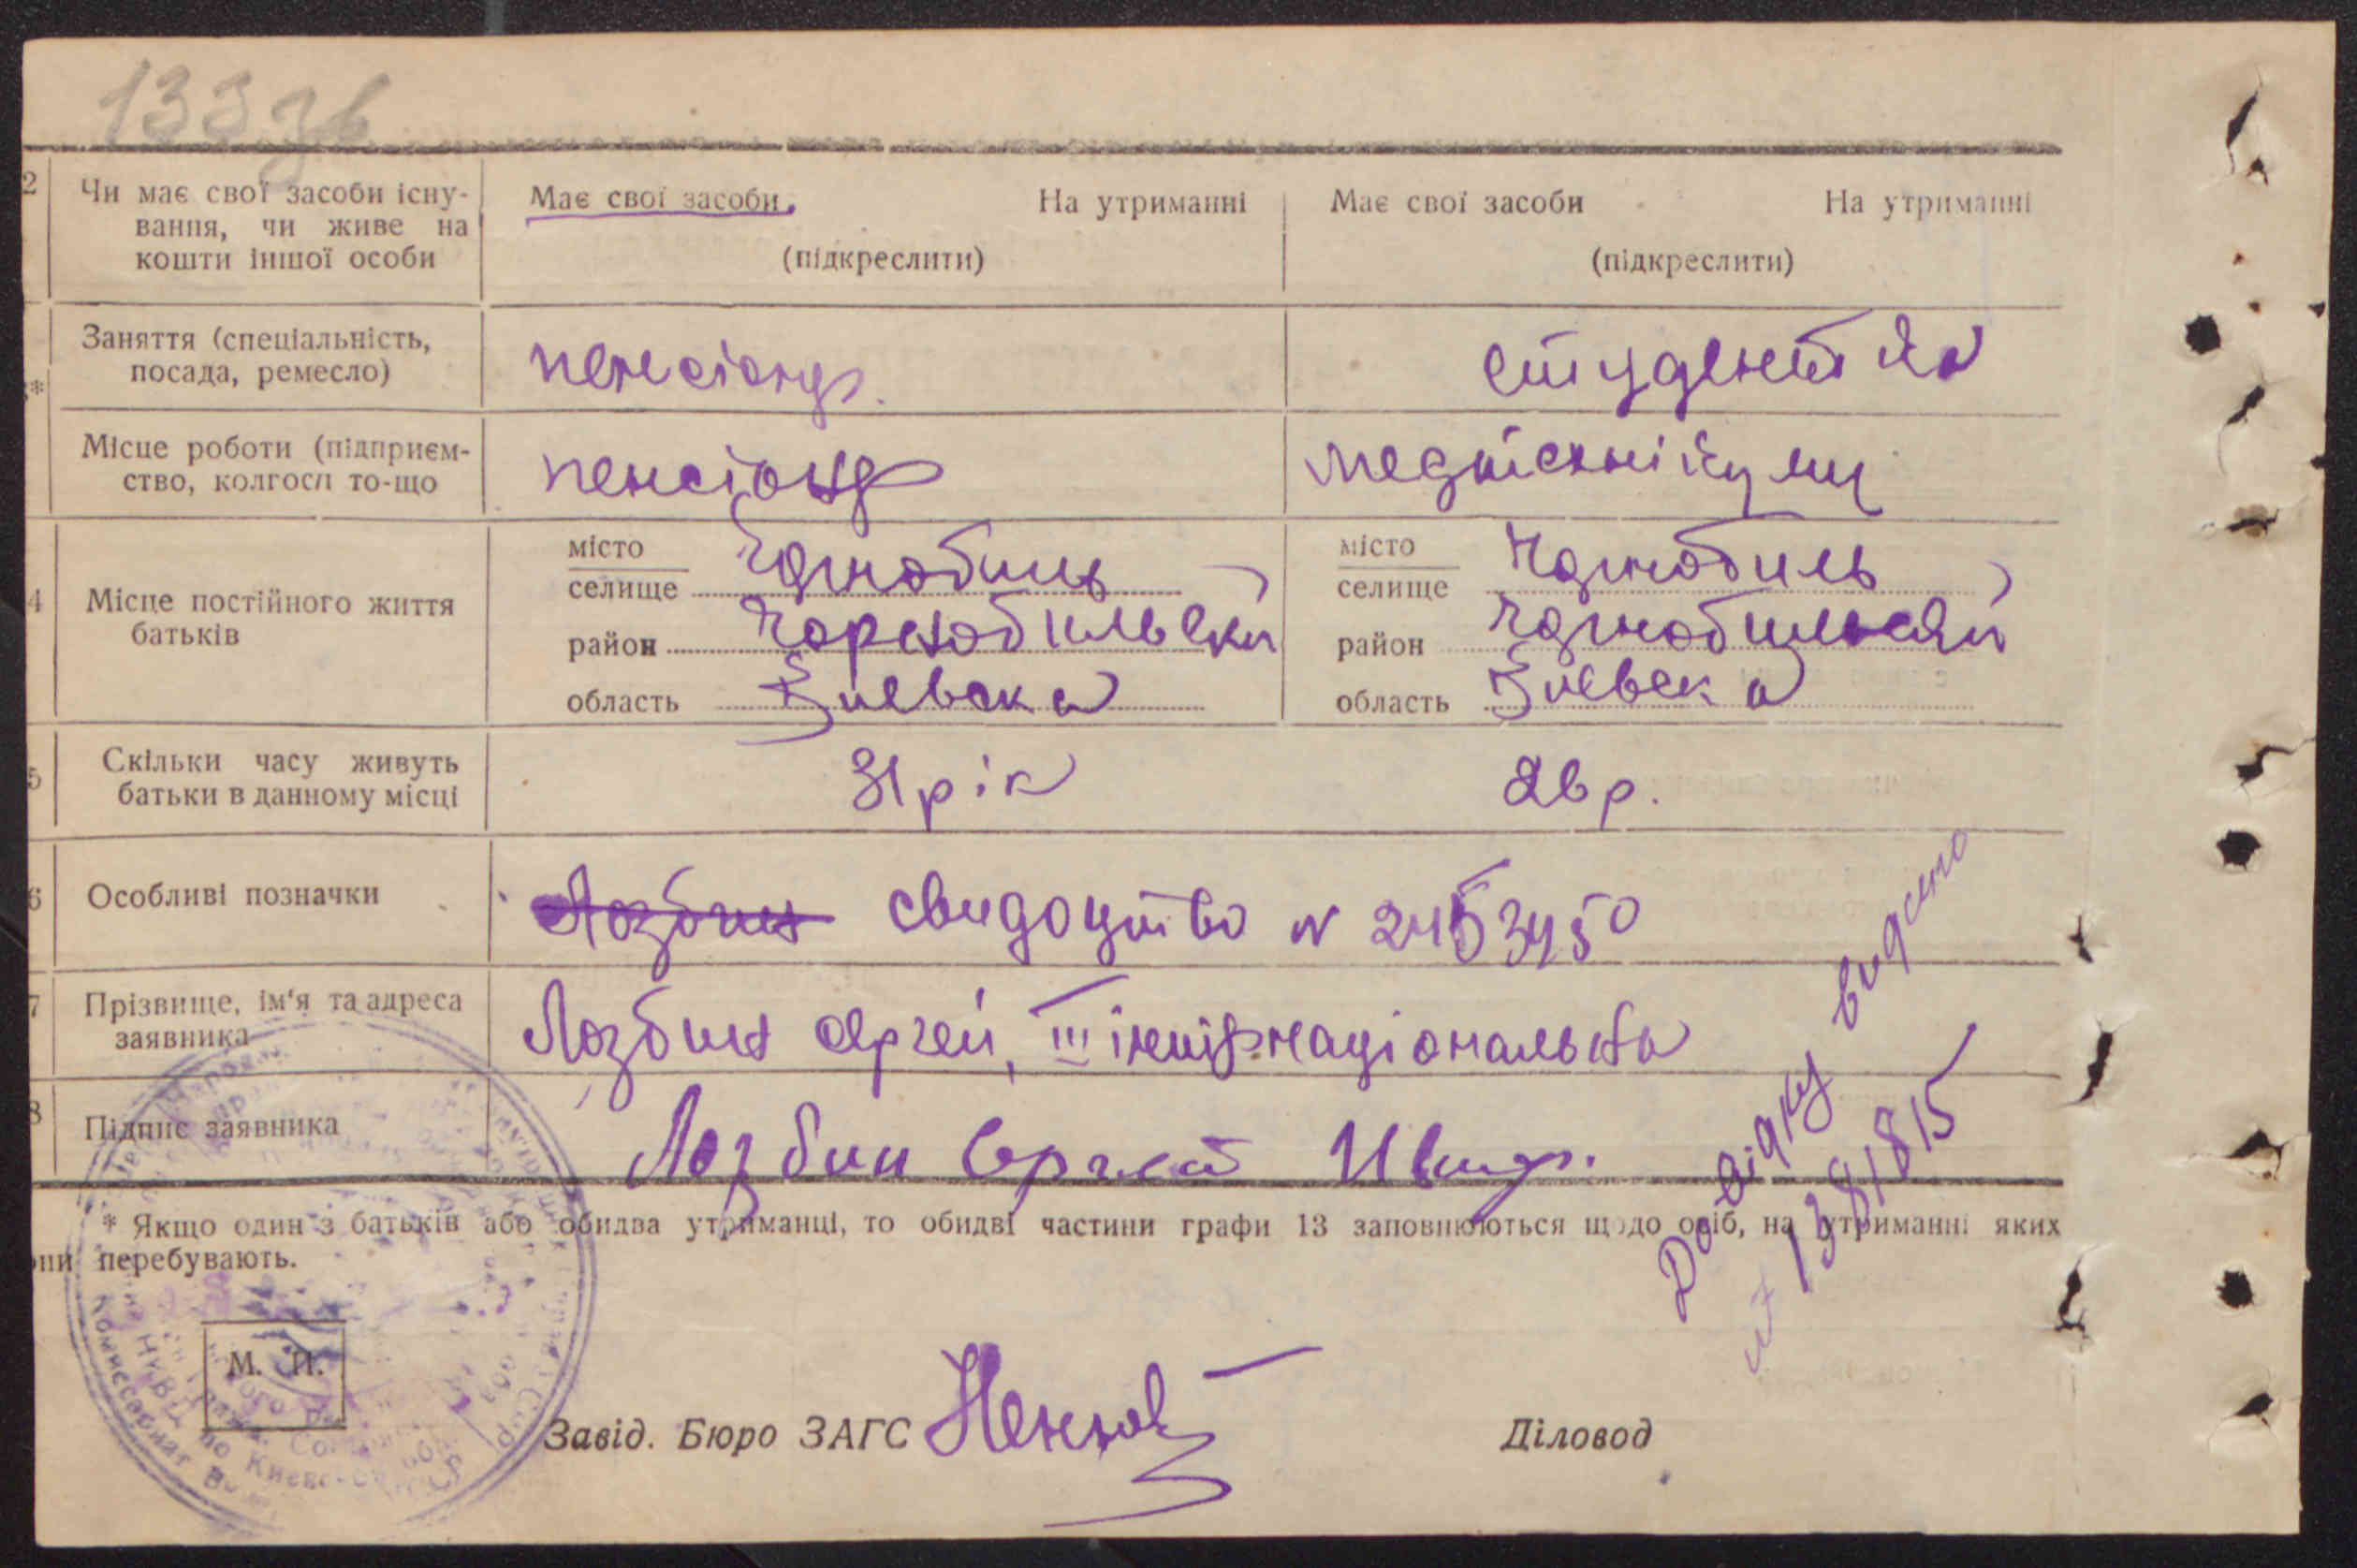 133зв
2 Чи має свої засоби існу-
вання, чи живе на
кошти іншої особи
Має свої засоби На утриманні
(підкреслити)
Має свої засоби На утриманні
(підкреслити)
* Заняття (спеціальність,
посада, ремесло)
пенсіонер.
студентка
Місце роботи (підприєм-
ство, колгосп то-що
пенсіонер
медтехнікум
4 Місце постійного життя
батьків
місто
селище Чорнобиль
район Чорнобильськи
область Київська
місто
селище Чорнобиль
район Чорнобильский
область Київська
5 Скільки часу живуть
батьки в данному місці
31 рік
26 р.
6 Особливі позначки
Лозбин свидоцтво N 2453450
7 Прізвище, ім'я та адреса
заявника
Лозбин Сергей, III інтірнаціональна
8 Підпис заявника
Лозбин Сергей
Довідку видано
№ 1381815
* Якщо один з батьків або обидва утриманці, то обидві частини графи 13 заповнюються щодо осіб, на утриманні яких
они перебувають.
М. П.
Завід. Бюро ЗАГС
Діловод